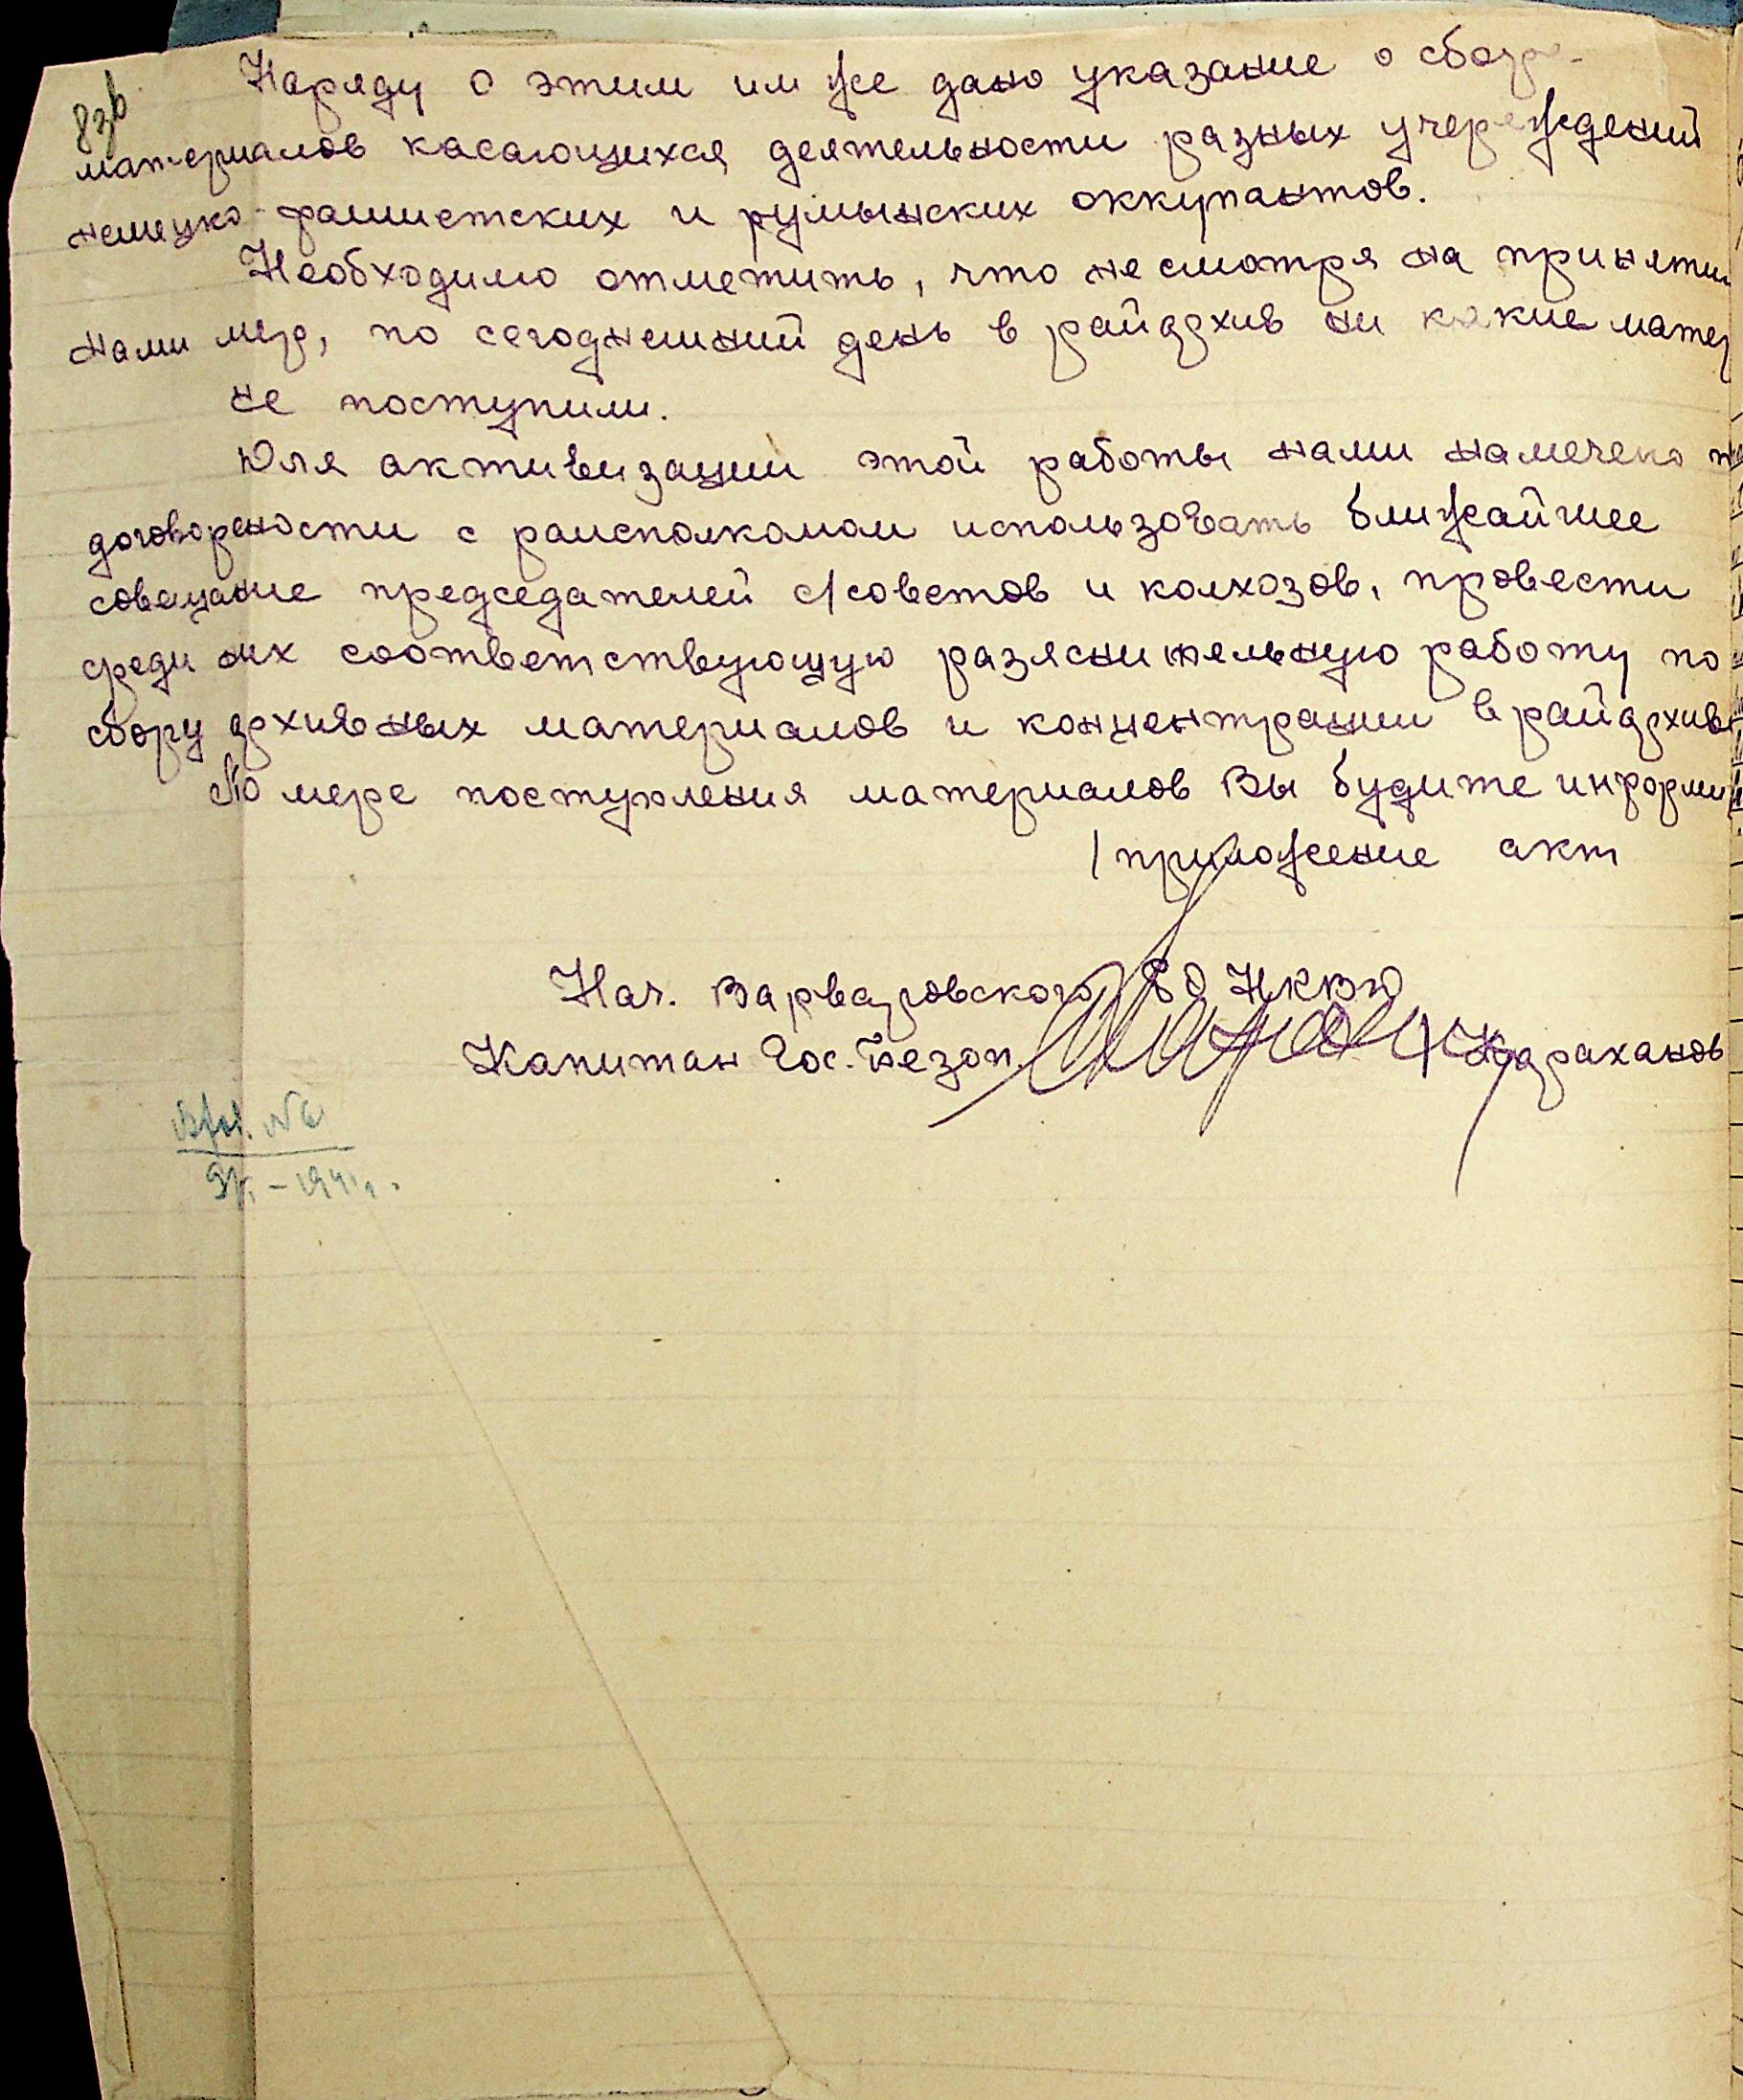 8зв
Наряду с этим им же дано указание о сборе
материалов касающихся деятельности разных учереждений
немецко-фашистских и румынских оккупантов.
Необходимо отметить, что не смотря на принятии
нами мер, по сегоднешний день в райархив ни какие матер
не поступили.
Для активизации этой работы нами намечено
договорености с раисполкомом использовать ближайшее
совещание председателей с/советов и колхозов, провести
среди них соответствующую разяснительную работу по
сбору архивных материалов и концентрации в райархив
По мере поступления материалов Вы будите информи
/приложение акт
Нач. Варваровского РО НКВД
Капитан Гос. Безоп. Караханов
№6